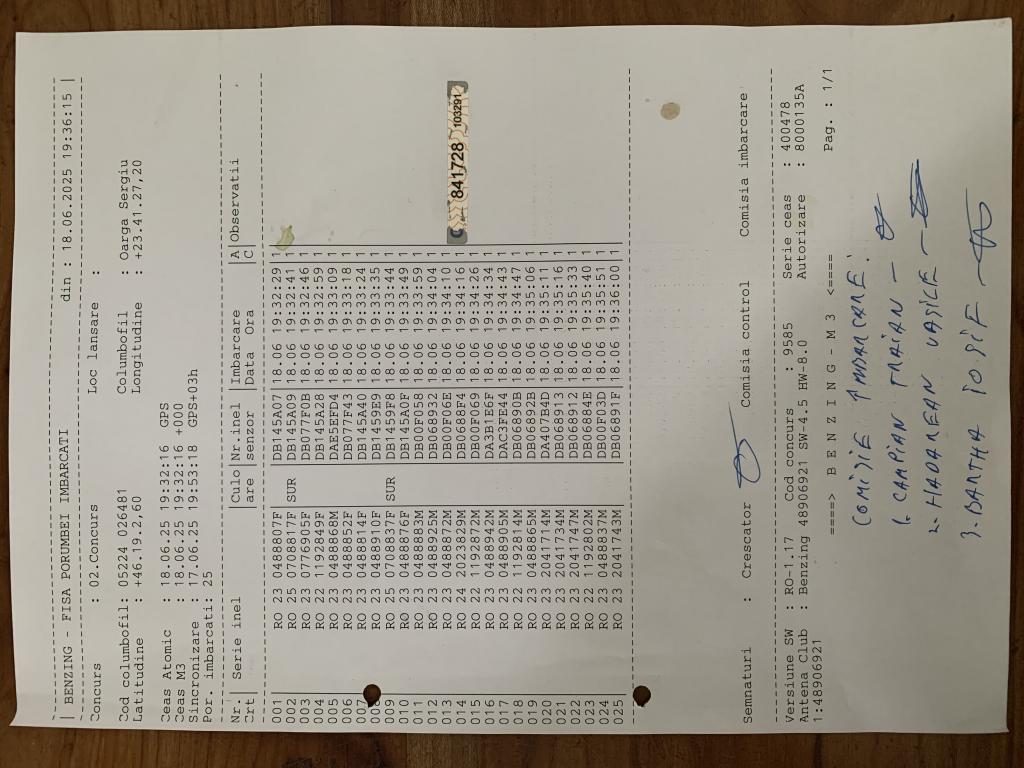 | BENZING - FISA PORUMBEI IMBARCATI din : 18.06.2025 19:36:15 |
Concurs : 02.Concurs Loc lansare :
Cod columbofil: 05224 026481 Columbofil : Oarga Sergiu
Latitudine : +46.19.2,60 Longitudine : +23.41.27,20
Ceas Atomic : 18.06.25 19:32:16 GPS
Ceas M3 : 18.06.25 19:32:16 +000
Sincronizare : 17.06.25 19:53:18 GPS+03h
Por. imbarcati: 25
Nr.| Serie inel |Culo|Nr.inel |Imbarcare A|Observatii
Crt| |are |senzor |Data Ora C|
001 RO 23 0488807F DB145A07 18.06 19:32:29 1
002 RO 25 0708817F SUR DB145A09 18.06 19:32:41 1
003 RO 23 0776905F DB077F0B 18.06 19:32:46 1
004 RO 22 1192849F DB145A28 18.06 19:32:59 1
005 RO 23 0488868M DAE5EFD4 18.06 19:33:09 1
006 RO 23 0488852F DB077F43 18.06 19:33:18 1
007 RO 23 0488814F DB145A40 18.06 19:33:24 1
008 RO 23 0488910F DB1459E9 18.06 19:33:35 1
009 RO 25 0708837F SUR DB1459F8 18.06 19:33:44 1
010 RO 23 0488876F DB145A0F 18.06 19:33:49 1
011 RO 23 0488883M DB00F058 18.06 19:33:59 1
012 RO 23 0488925M DB068932 18.06 19:34:04 1
013 RO 23 0488872M DB00F06E 18.06 19:34:10 1
014 RO 24 2023829M DB0688F4 18.06 19:34:16 1
015 RO 22 1192872M DB00F069 18.06 19:34:26 1
016 RO 23 0488942M DA3B1E6F 18.06 19:34:34 1
017 RO 23 0488905M DAC3FE44 18.06 19:34:43 1
018 RO 22 1192814M DB06890B 18.06 19:34:47 1
019 RO 23 0488865M DB06892B 18.06 19:35:06 1
020 RO 23 2041714M DA407B4D 18.06 19:35:11 1
021 RO 23 2041734M DB068913 18.06 19:35:11 1
022 RO 23 2041747M DB068912 18.06 19:35:33 1
023 RO 22 1192802M DB06884E 18.06 19:35:40 1
024 RO 23 0488837M DB00F03D 18.06 19:35:51 1
025 RO 23 2041743M DB06891F 18.06 19:36:00 1
841728 103291
Semnaturi : Crescator Comisia control Comisia imbarcare
Versiune SW : RO-1.17 Cod concurs : 9585 Serie ceas : 400478
Antena Club : Benzing 48906921 SW-4.5 HW-8.0 Autorizare : 8000135A
1:48906921
====> B E N Z I N G - M 3 <==== Pag. : 1/1
COMISIE IMBARCARE:
1. CAMPIAN TRAIAN -
2. HADAREAN VASILE -
3. BARTHA IOSIF -